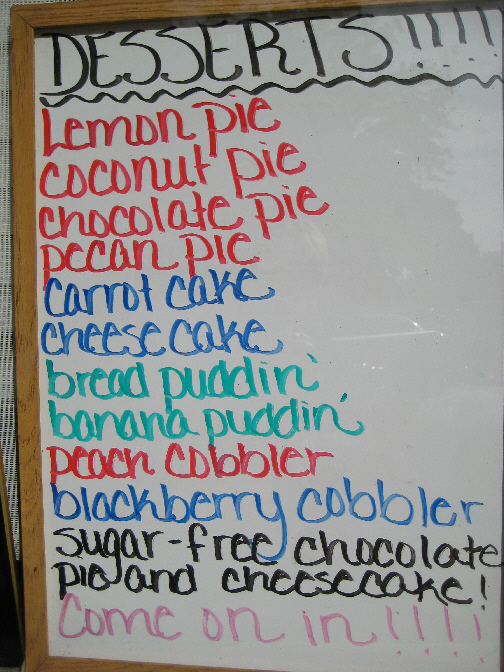 DESSERTS!!!!
Lemon pie
coconut pie
chocolate pie
pecan pie
carrot cake
cheese cake
bread puddin'
banana puddin'
peach cobbler
blackberry cobbler
sugar-free chocolate
pie and cheesecake!
Come on in!!!!